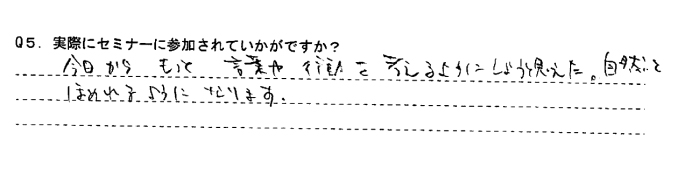 Q5. 実際にセミナーに参加されていかがですか？
今日から もっと 言葉や 行動を 考えるようにしようと思えた。自然と
ほめれるように なります。